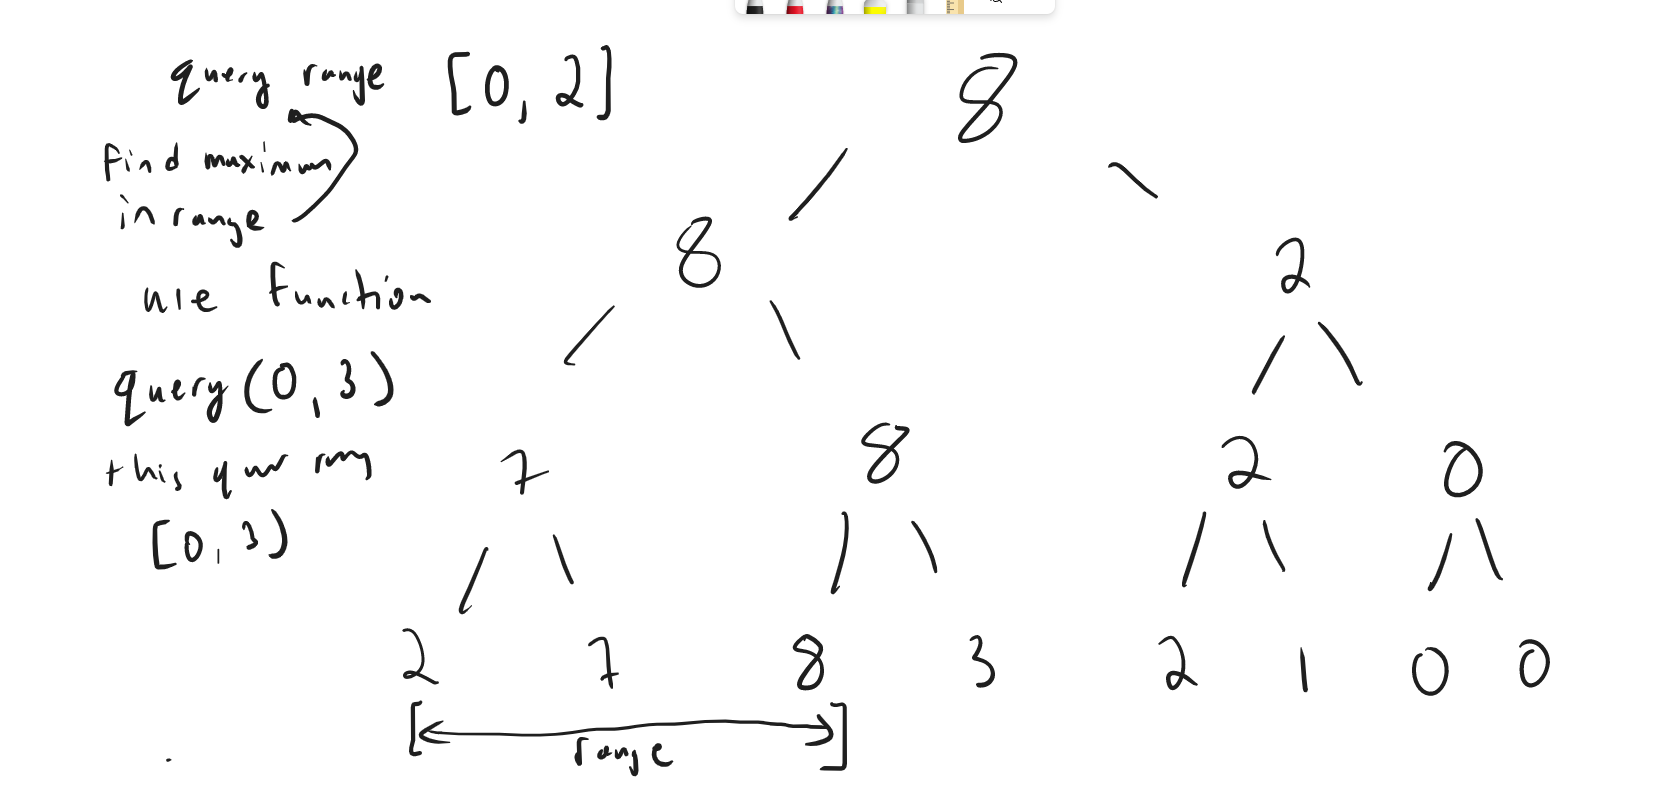 query range [0, 2]
find maximum
in range
use function
query(0, 3)
this
[0, 3)
8
8 2
7 8 2 0
2 7 8 3 2 1 0 0
range